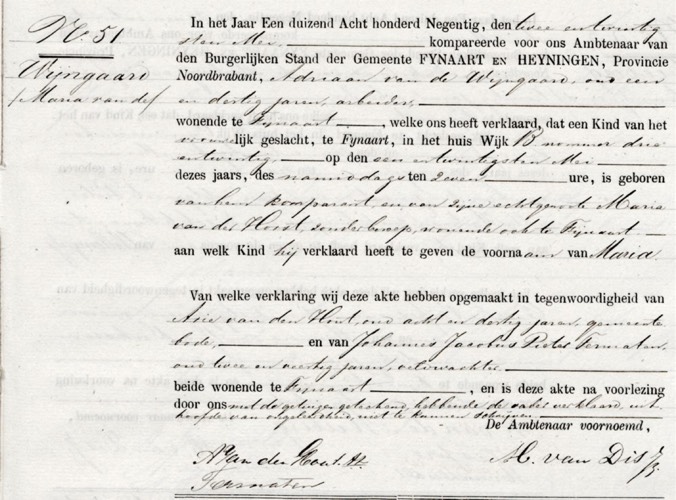 No. 51
Wijngaard
Maria van de
In het Jaar Een duizend Acht honderd Negentig, den twee entwintig
sten Mei, kompareerde voor ons Ambtenaar van
den Burgerlijken Stand der Gemeente FYNAART EN HEYNINGEN, Provincie
Noordbrabant, Adriaan van de Wijngaard, oud een
en dertig jaren, arbeider,
wonende te Fijnaart, welke ons heeft verklaard, dat een Kind van het
vrouwelijk geslacht, te Fynaart, in het huis Wijk B nommer drie
entwintig op den een entwintigsten Mei
dezes jaars, des namiddags ten zeven ure, is geboren
van hem komparant, en van zijne echtgenote Maria
van der Hout, zonder beroep, wonende ook te Fijnaart
aan welk Kind hij verklaard heeft te geven de voornaam van Maria
Van welke verklaring wij deze akte hebben opgemaakt in tegenwoordigheid van
Arie van den Hout, oud acht en dertig jaren, gemeente
bode, en van Johannes Jacobus Pieter Vermaten,
oud twee en veertig jaren, veldwachter,
beide wonende te Fijnaart, en is deze akte na voorlezing
door ons met de getuigen geteekend, hebbende de vader verklaard, uit
hoofde van ongeleerdheid, niet te kunnen schrijven.
De Ambtenaar voornoemd,
A van den Hout
M. van Dis
Vermaten